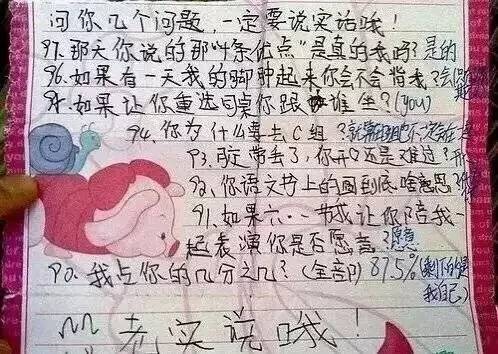 问你几个问题，一定要说实话哦！
97.那天你说的那"4条优点"是真的我吗？是的
96.如果有一天我的脚肿起来你会不会背我？会
95.如果让你重选同桌你跟谁坐？(you)
94.你为什么要去C组？
93.我走丢了，你开心还是难过？
92.你语文书上的画到底啥意思？
91.如果六·一节我让你陪我一
起表演你是否愿意？愿意
90.我占你的几分之几？(全部)87.5%(剩下的是
我自己)
老实说哦！